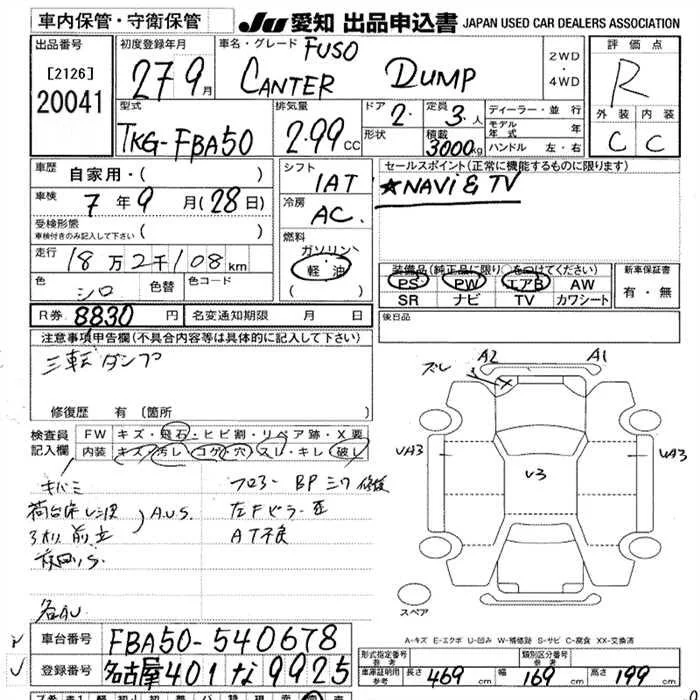 車内保管・守衛保管
JU 愛知 出品申込書 JAPAN USED CAR DEALERS ASSOCIATION
出品番号
[2126]
20041
初度登録年月
27 9月
車名・グレード FUSO
CANTER DUMP
2WD
・
4WD
評価点
R
外装 内装
C C
型式
TKG-FBA50
排気量
2.99 CC
ドア 2.
形状
定員 3.人
積載 3000kg
ディーラー・並行
モデル年式 年
ハンドル 左・右
車歴 自家用・( )
車検 7年9月(28日)
受検形態
車検付きのみ記入して下さい ( )
走行 18万2千108km
色 シロ 色替 色コード
シフト
1AT
冷房
AC.
燃料
ガソリン
軽油
( )
セールスポイント(正常に機能するものに限ります)
★NAVi & TV
装備品(純正品に限り○をつけてください)
PS PW エアB AW
SR ナビ TV カワシート
新車保証書
有・無
R券 8830円 名変通知期限 月 日
後日品
注意事項申告欄(不具合内容等は具体的に記入して下さい)
三転ダンプ
修復歴 有 [箇所 ]
検査員記入欄
FW キズ・飛石・ヒビ割・リペア跡・X要
内装 キズ・汚レ・コゲ・穴・スレ・キレ・破レ
キバミ
A.U.S.
フロアー BP ミワ 修復
左Fピラー 歪
AT不良
ズレ A2 A1
X
UA3 UA3
V3
スペア
A-キズ E-エクボ U-凹み W-補修跡 S-サビ C-腐食 XX-交換済
車台番号 FBA50-540678
登録番号 名古屋 401 な 9925
形式指定番号 参考
類別区分番号 参考
車庫証明用参考 長さ 469cm 幅 169cm 高さ 199cm